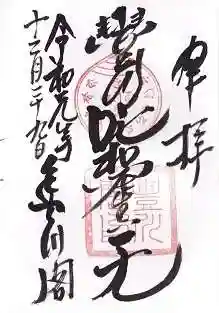 奉拝
豐川吒枳尼眞天
令和元年 豐川閣
十二月二十九日